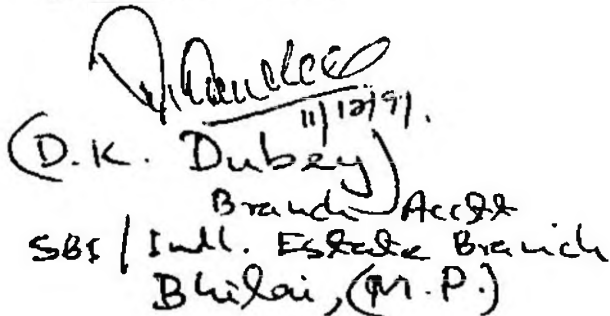 11/12/91.
(D.K. Dubey)
Branch Acctt
SBI / Indl. Estate Branch
Bhilai, (M.P.)